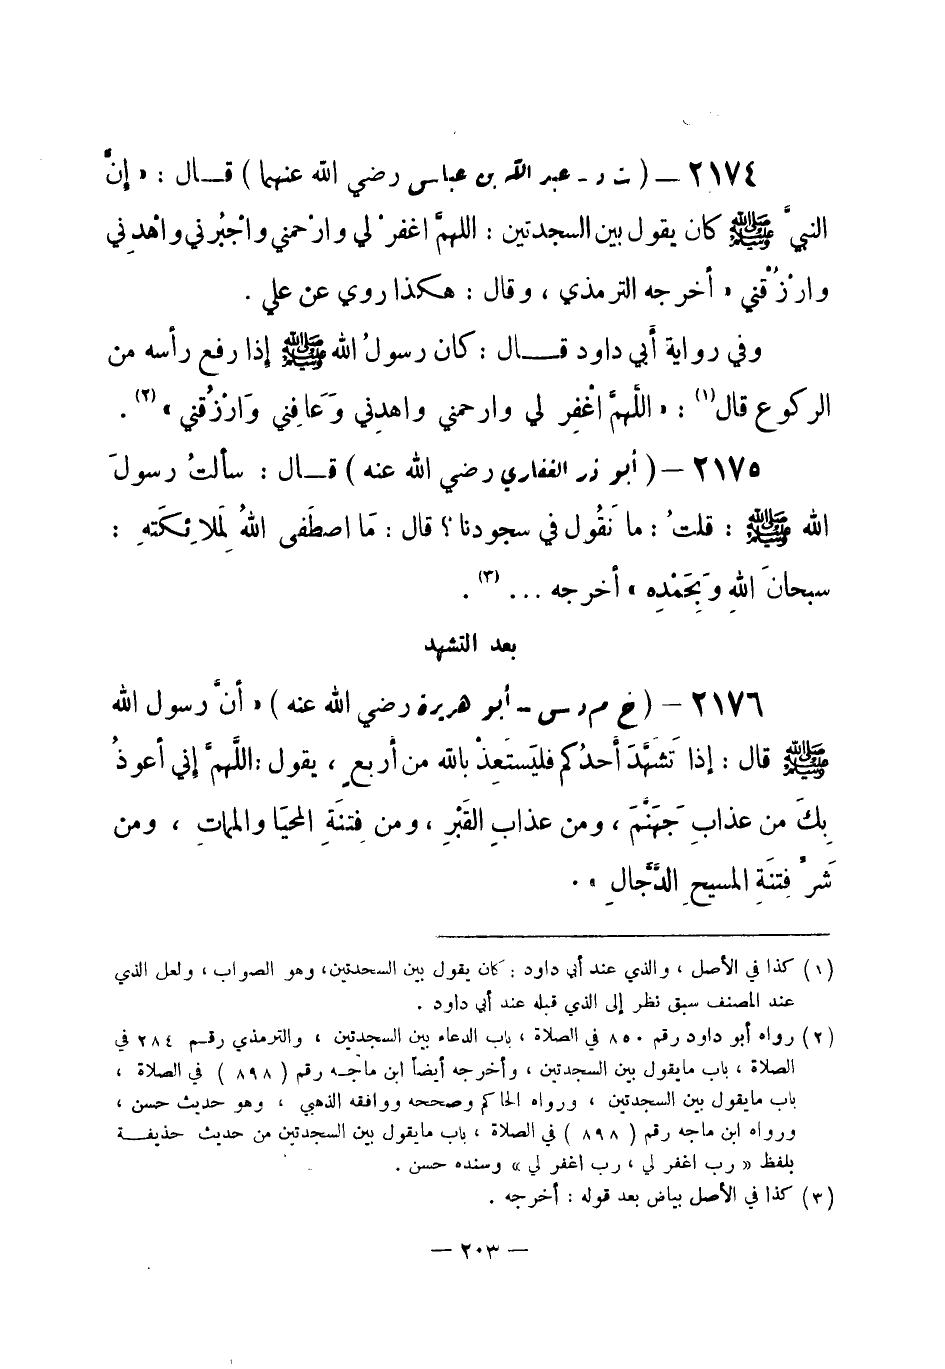 ٢١٧٤ — ( ت د - عبد الله بن عباس رضي الله عنهما ) قــال : « إنَّ
النبيَّ ﷺ كان يقول بين السجدتين : اللهمَّ اغفرْ لي وارْحمني واجْبُرني واهْدِني
وارْزُقْني » أخرجه الترمذي ، وقال : هكذا روي عن علي .
وفي رواية أبي داود قــــال : كان رسولُ الله ﷺ إذا رفع رأسه من
الركوع قال (١) : « اللَّهمَّ اغْفِر لي وارحمني واهدِني وَعَافِني وَارْزُقني » (٢) .
٢١٧٥ — ( أبو ذر الغفاري رضي الله عنه ) قــال : سألتُ رسولَ
الله ﷺ : قلتُ : ما نَقُول في سجودنا ؟ قال : مَا اصطَفى اللهُ لِمَلائِكَتهِ :
سبحانَ اللهِ وَبِحَمْدِه » أخرجه ... (٣) .
بعد التشهد
٢١٧٦ — ( خ م د س - أبو هريرة رضي الله عنه ) « أنَّ رسول الله
ﷺ قال : إذا تَشهَّدَ أحدُكم فليَستَعِذْ بالله من أربعٍ ، يقول : اللَّهمَّ إني أعوذُ
بِكَ من عذابِ جَهَنَّمَ ، ومن عذابِ القَبْرِ ، ومن فِتنَةِ المحيَا والمماتِ ، ومن
شَرِّ فِتنَةِ المسيحِ الدَّجَّالِ » .
(١) كذا في الأصل ، والذي عند أبي داود : كان يقول بين السجدتين، وهو الصواب ، ولعل الذي
عند المصنف سبق نظر إلى الذي قبله عند أبي داود .
(٢) رواه أبو داود رقم ٨٥٠ في الصلاة ، باب الدعاء بين السجدتين ، والترمذي رقــم ٢٨٤ في
الصلاة ، باب مايقول بين السجدتين ، وأخرجه أيضاً ابن ماجــه رقم ( ٨٩٨ ) في الصلاة ،
باب مايقول بين السجدتين ، ورواه الحاكم وصححه ووافقه الذهبي ، وهو حديث حسن ،
ورواه ابن ماجه رقم ( ٨٩٨ ) في الصلاة ، باب مايقول بين السجدتين من حديث حذيفــة
بلفظ « رب اغفر لي ، رب اغفر لي » وسنده حسن .
(٣) كذا في الأصل بياض بعد قوله : أخرجه .
— ٢٠٣ —